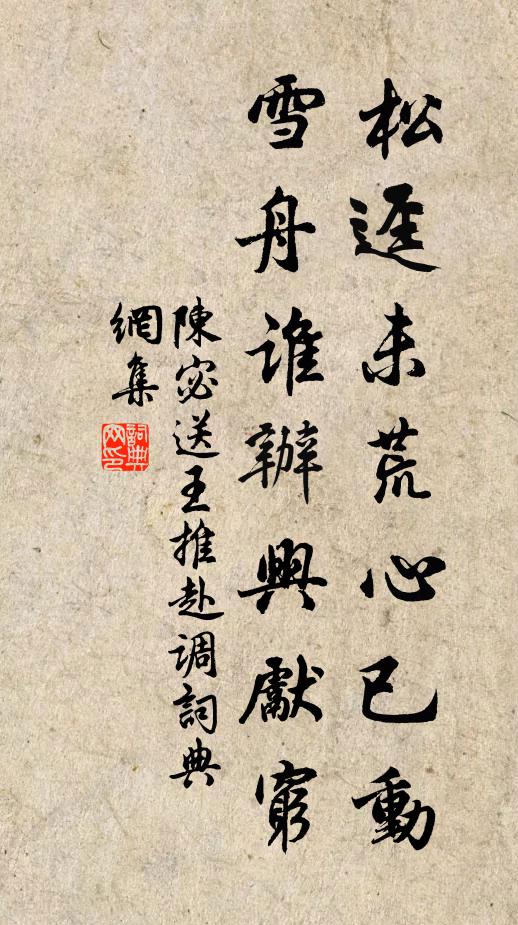 松迳未荒心已動
雪舟誰辦興獻窮
陳宓送王推赴调詞典
網集
詞典
网印